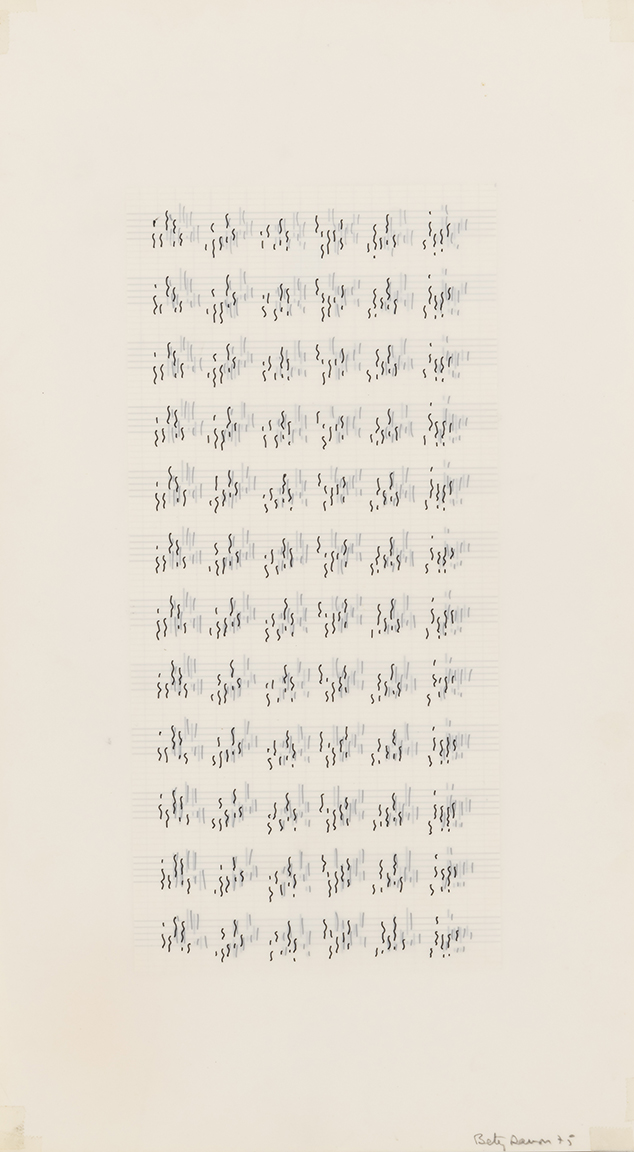 Betsy Damon 75